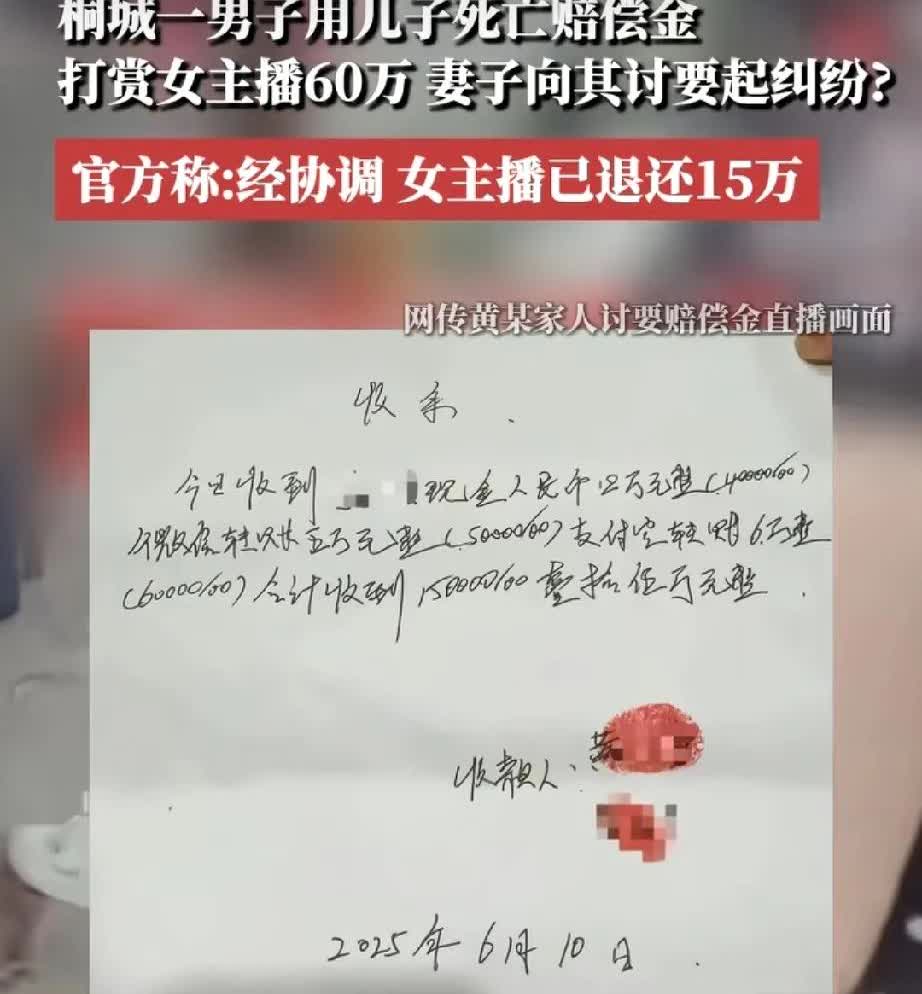 桐城一男子用儿子死亡赔偿金
打赏女主播60万 妻子向其讨要起纠纷?
官方称:经协调 女主播已退还15万
网传黄某家人讨要赔偿金直播画面
收条.
今日收到 现金人民币四万元整(40000/00)
微信转账五万元整(50000/00)支付宝转账6万整
(60000/00)合计收到150000/00壹拾伍万元整.
收款人:黄
2025年6月10日.